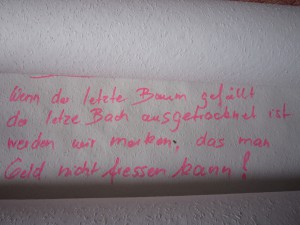 Wenn der letzte Baum gefällt
der letze Bach ausgetrocknet ist
werden wir merken, das man
Geld nicht fressen kann!